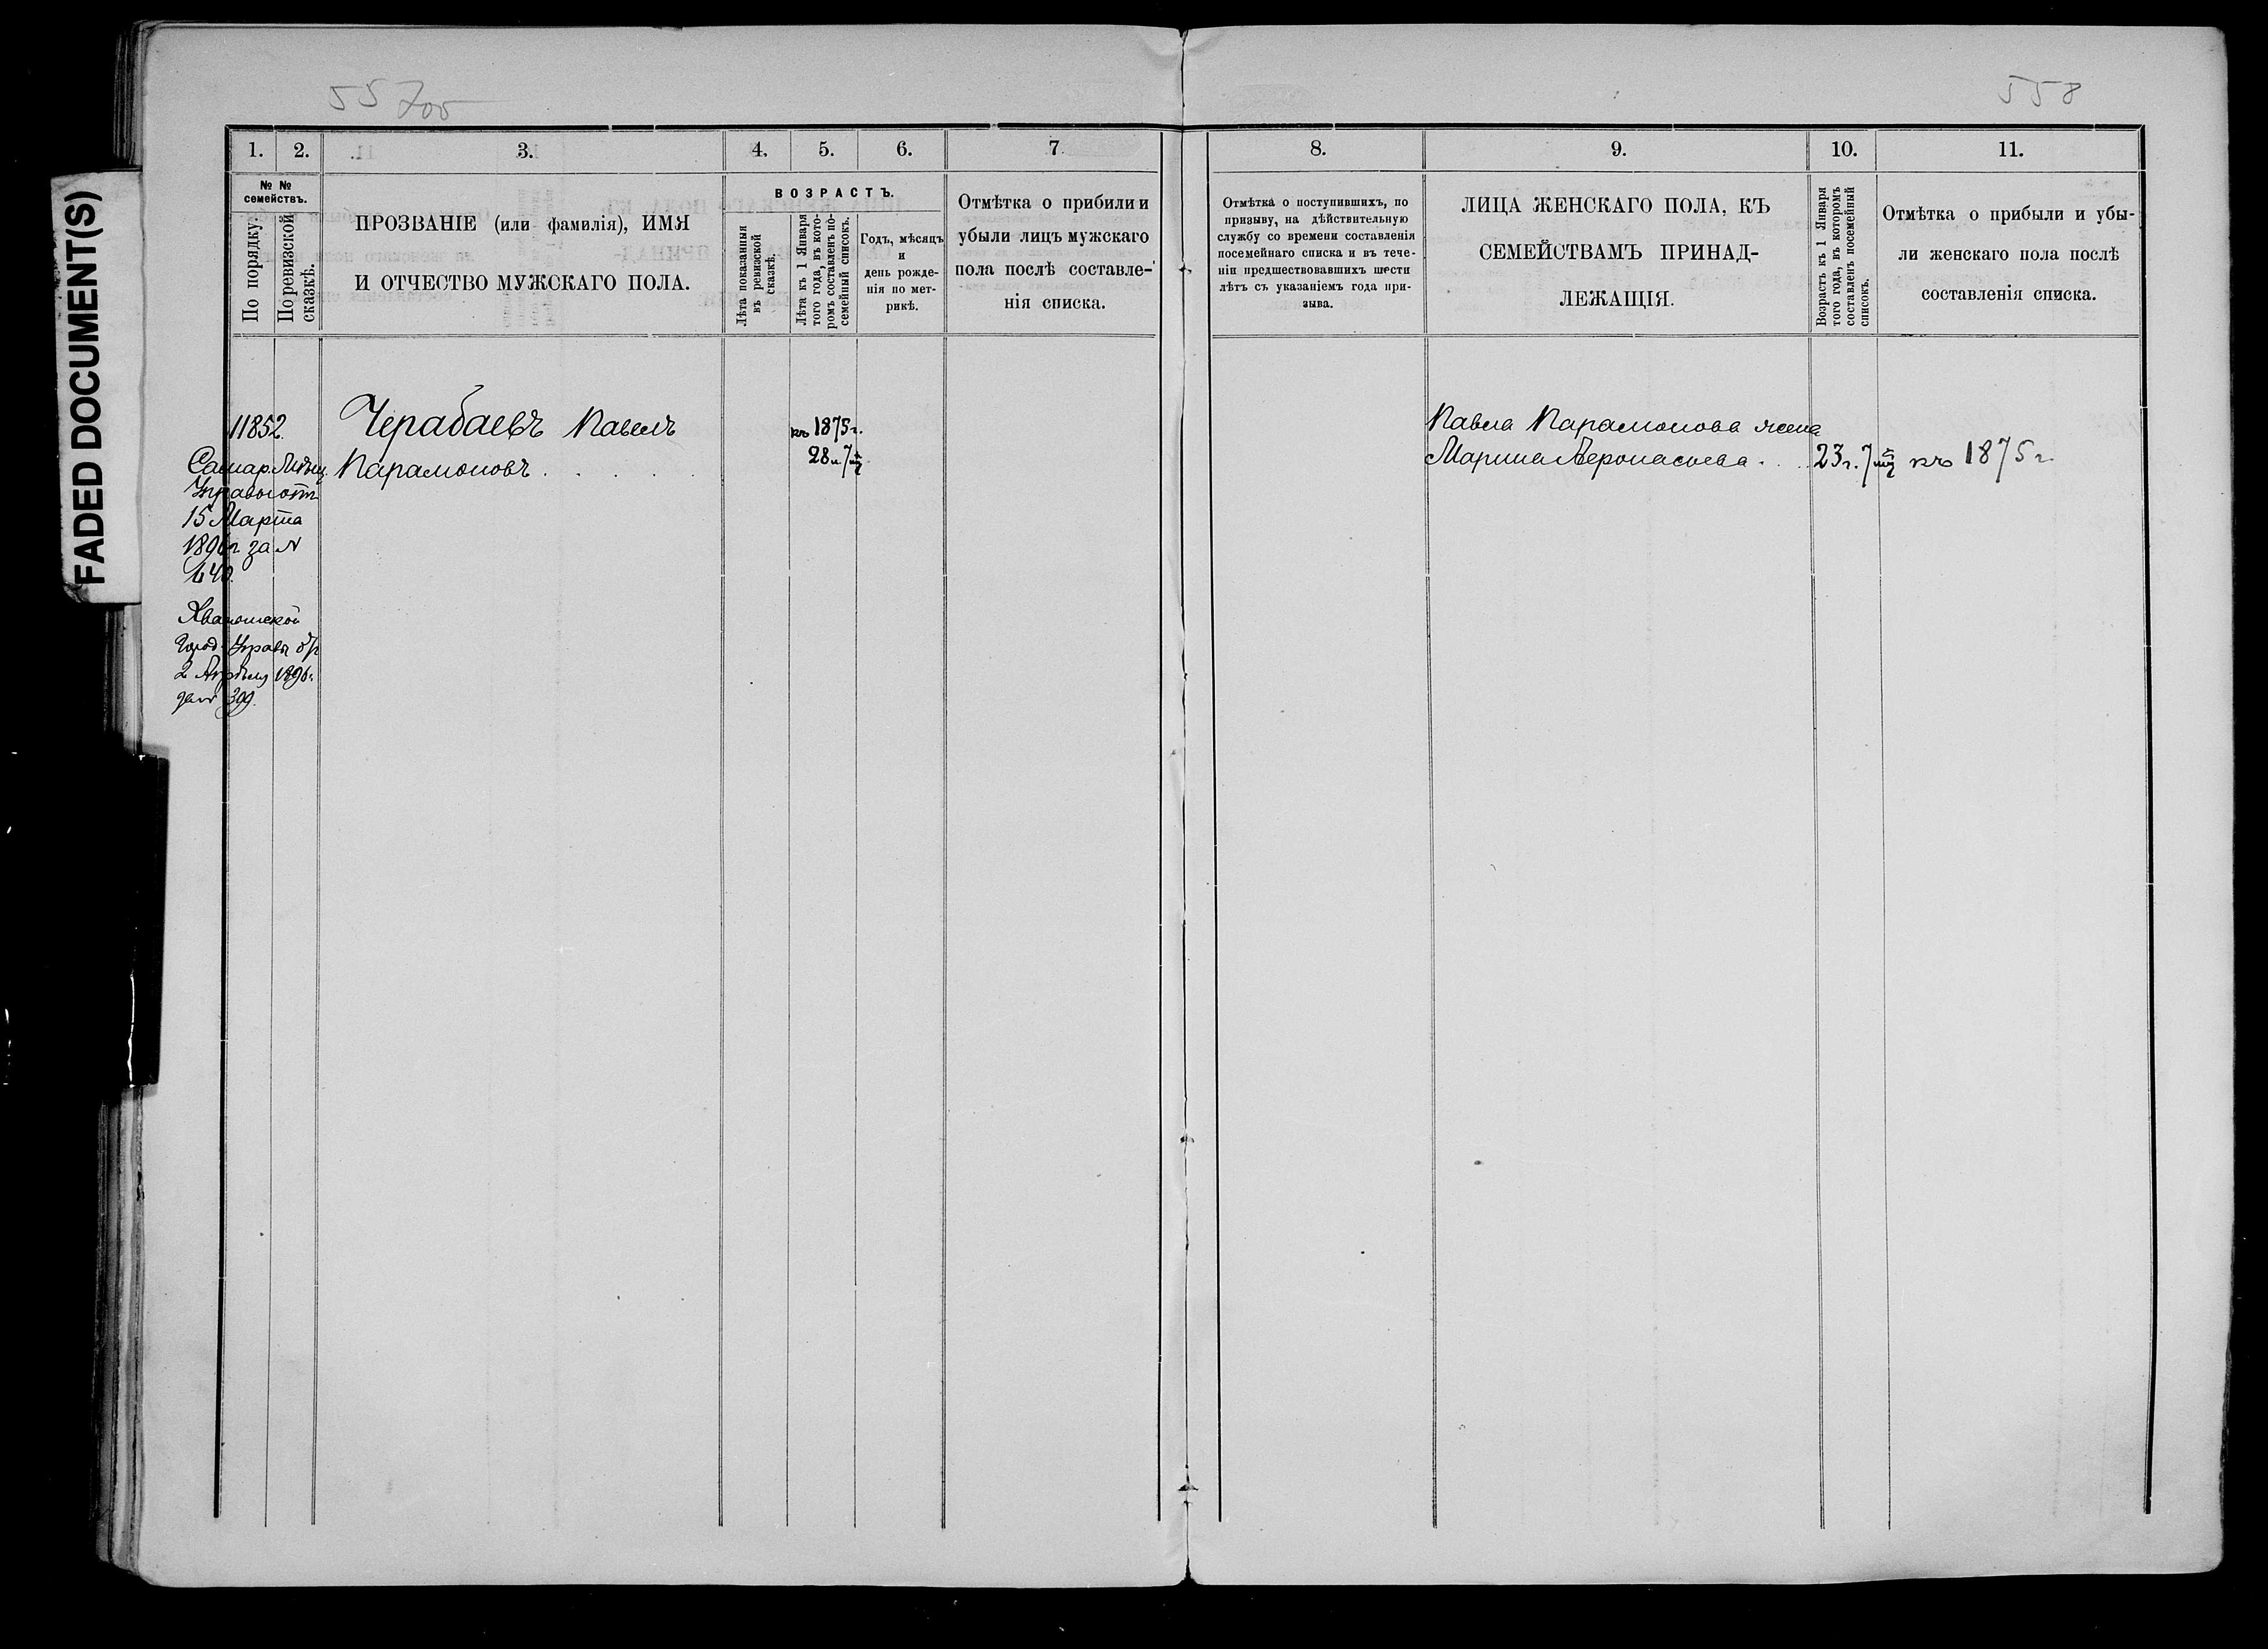 FADED DOCUMENT(S)
557об
558
1. 2. 3. 4. 5. 6. 7
№ №
семействъ.
По порядку.
По ревизской
сказкѣ.
ПРОЗВАНІЕ (или фамилія), ИМЯ
И ОТЧЕСТВО МУЖСКАГО ПОЛА.
ВОЗРАСТЪ.
Лѣта показанныя
въ ревизской
сказкѣ.
Лѣта къ 1 Января
того года, въ кото-
ромъ составленъ по-
семейный списокъ.
Годъ, мѣсяцъ
и
день рожде-
нія по мет-
рикѣ.
Отмѣтка о прибыли и
убыли лицъ мужскаго
пола послѣ составле-
нія списка.
8. 9. 10. 11.
Отмѣтка о поступившихъ, по
призыву, на дѣйствительную
службу со времени составленія
посемейнаго списка и въ тече-
ніи предшествовавшихъ шести
лѣтъ съ указаніемъ года при-
зыва.
ЛИЦА ЖЕНСКАГО ПОЛА, КЪ
СЕМЕЙСТВАМЪ ПРИНАД-
ЛЕЖАЩІЯ.
Возрастъ къ 1 Января
того года, въ которомъ
составленъ посемейный
списокъ.
Отмѣтка о прибыли и убы-
ли женскаго пола послѣ
составленія списка.
11852.
Самар. Мѣщ.
Управы отъ
15 Марта
1896г за №
640.
Хвалынской
Город. Управы от
2 Апрѣля 1896г
за № 399.
Черабаевъ Павелъ
Парамоновъ . . . .
къ 1875г.
28 л 7 м
Павла Парамонова жена
Марина . . .
23 г. 7 м къ 1875 г.